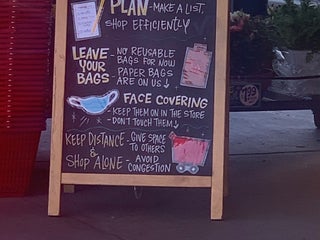 PLAN - MAKE A LIST.
SHOP EFFICIENTLY
LEAVE YOUR BAGS - NO REUSABLE
BAGS FOR NOW
- PAPER BAGS
ARE ON US ↓
FACE COVERING
- KEEP THEM ON IN THE STORE
- DON'T TOUCH THEM ↓
KEEP DISTANCE - GIVE SPACE
TO OTHERS
& SHOP ALONE - AVOID
CONGESTION